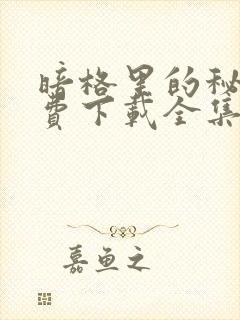 暗格里的秘
费下载全集
嘉鱼之